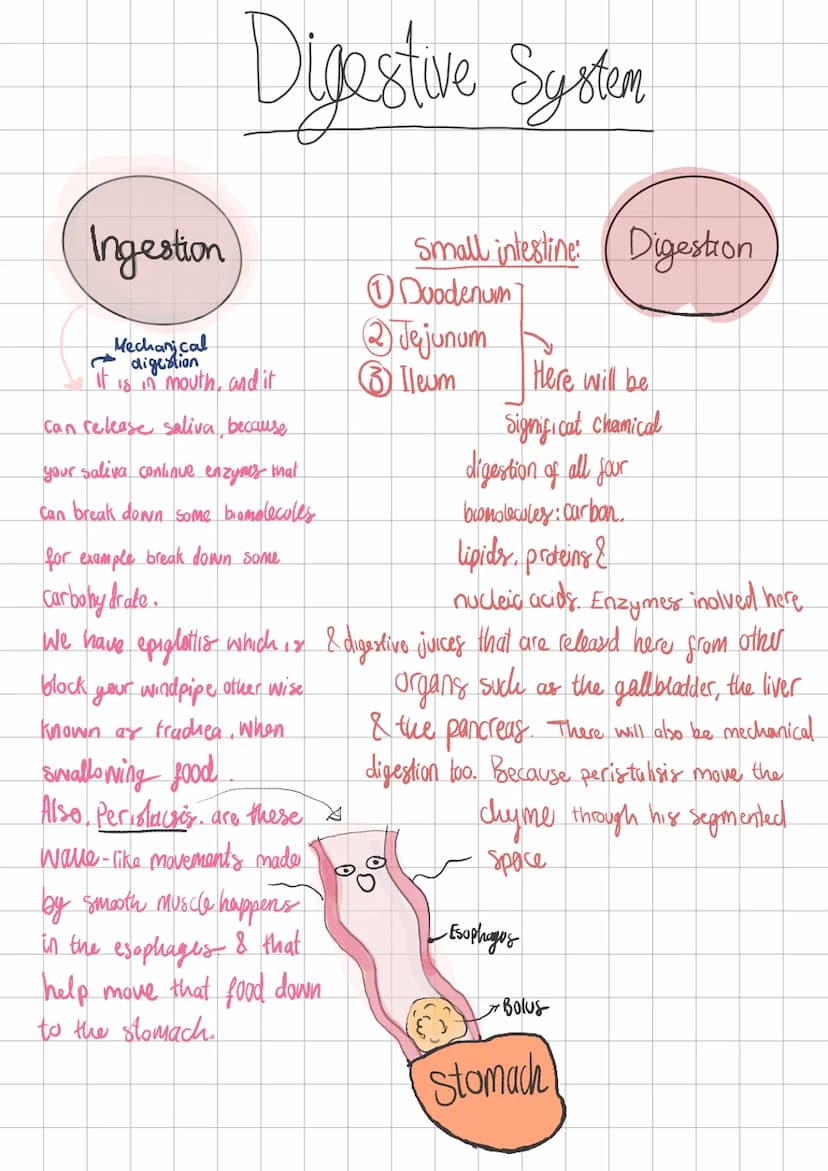 Digestive System
Ingestion
Mechanical
digestion
It is in mouth, and it
can release saliva, because
your saliva continue enzymes that
can break down some biomolecules
for example break down some
carbohydrate.
We have epiglottis which is
block your windpipe other wise
known as trachea, when
swallowing food.
Also, Peristalsis. are these
wave-like movements made
by smooth muscle happens
in the esophages & that
help move that food down
to the stomach.
Digestion
Small intestine:
① Duodenum
② Jejunum
③ Ileum
Here will be
significat chamical
digestion of all four
biomolecules: carban,
lipids, proteins &
nucleic acids. Enzymes inolved here
& digestive juices that are releasd here from other
organs such as the gallbladder, the liver
& the pancreas. There will also be mechanical
digestion too. Because peristalsis move the
chyme through his segmented
space
Esophagus
Bolus
Stomach